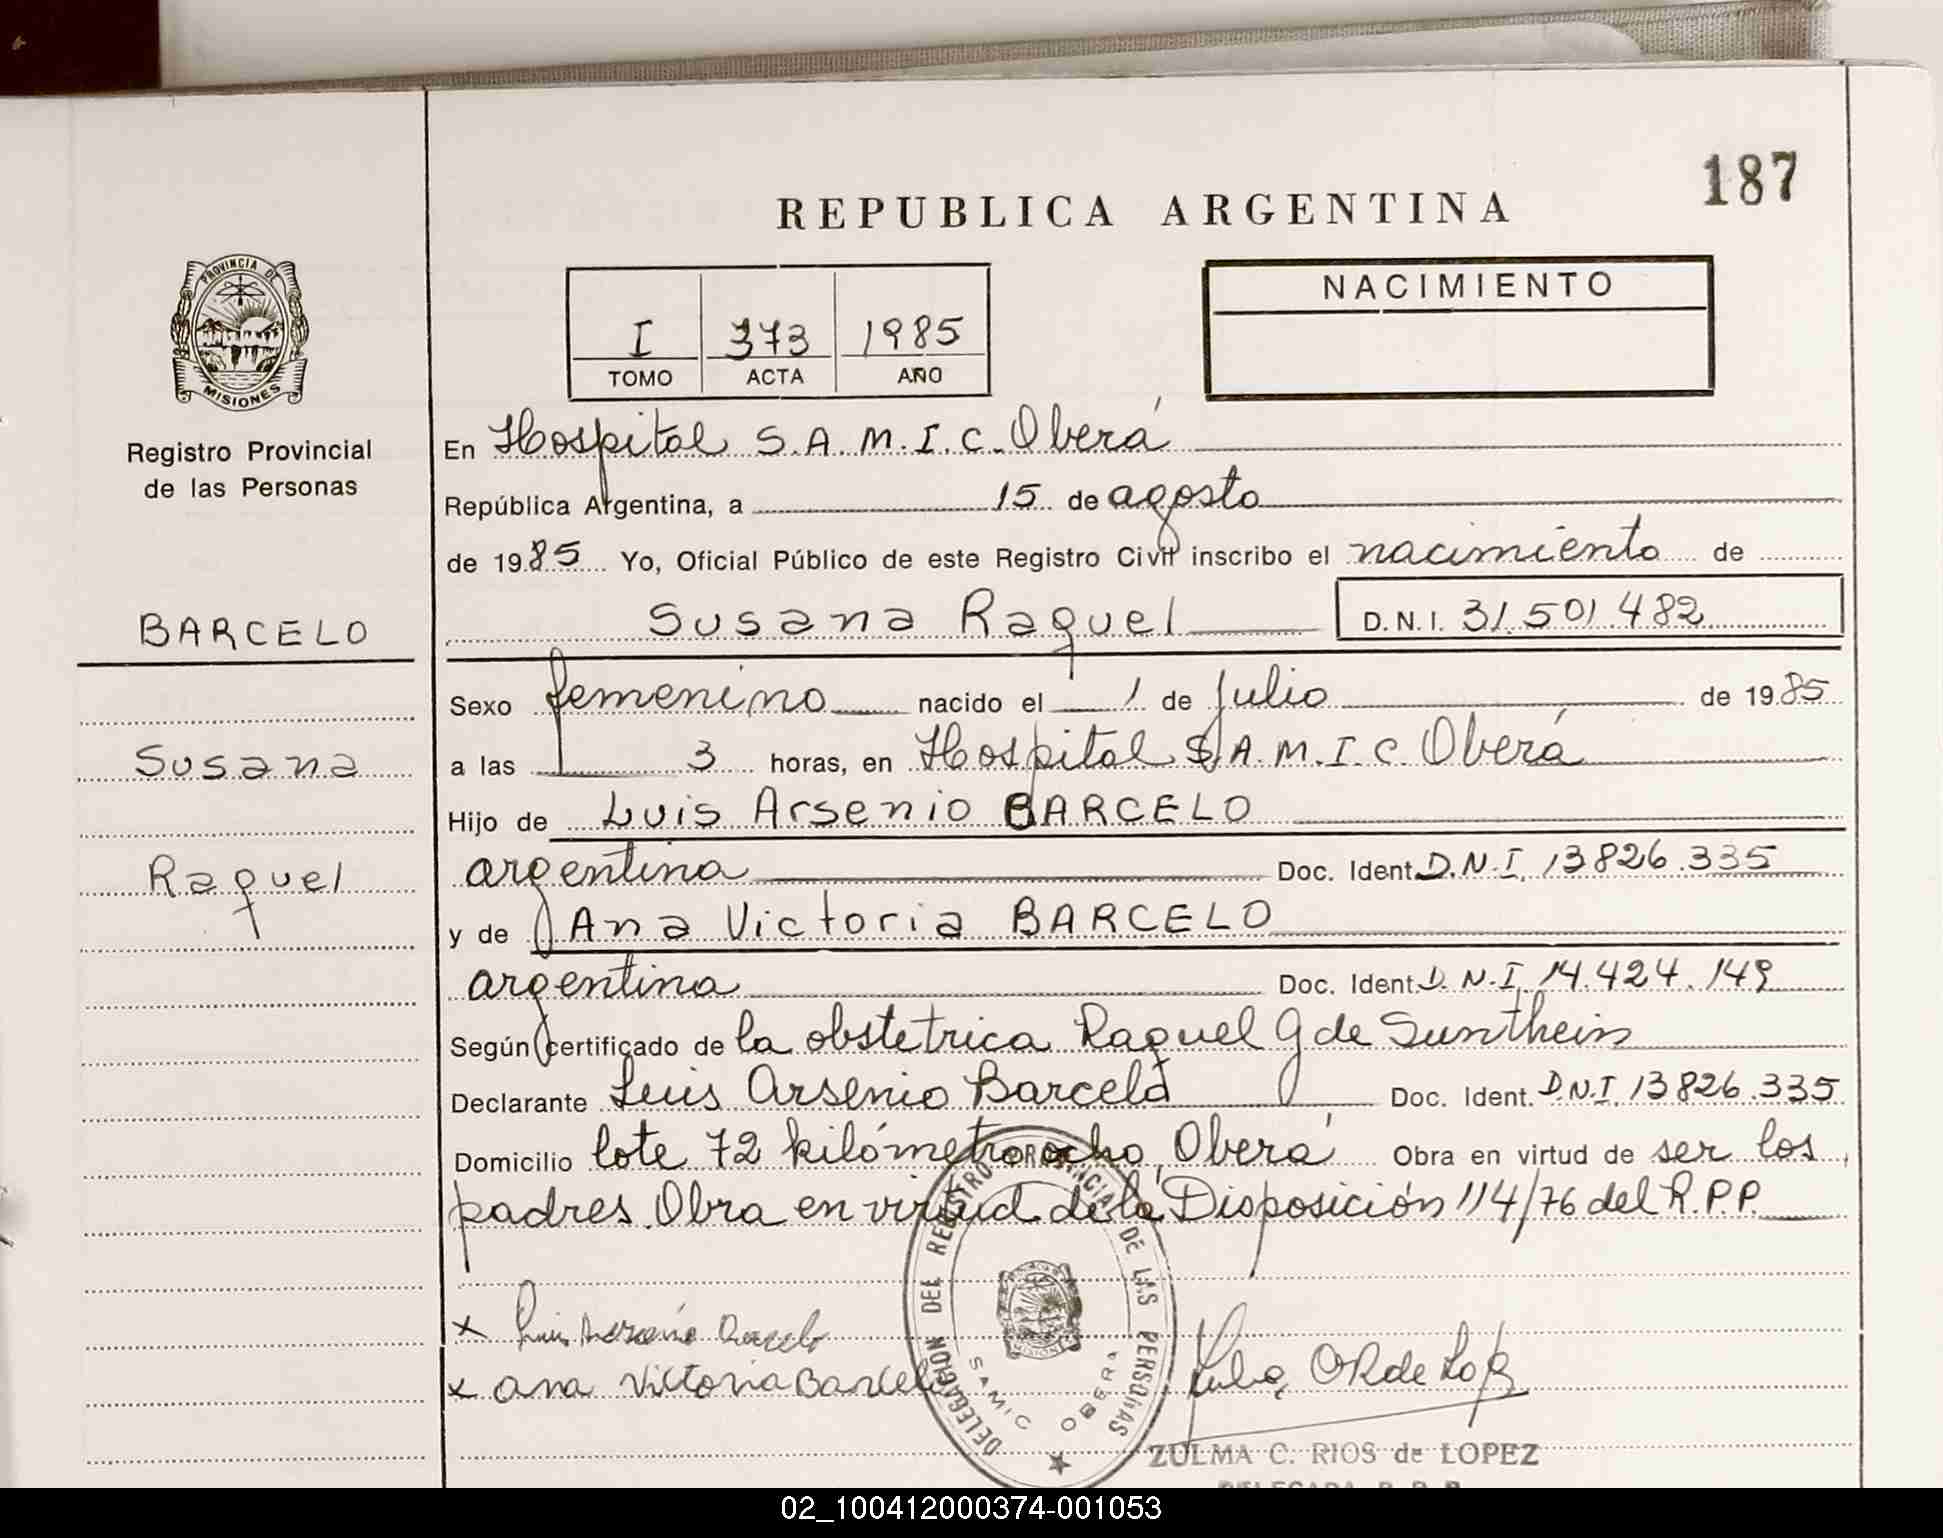 187
REPUBLICA ARGENTINA
PROVINCIA DE
MISIONES
Registro Provincial
de las Personas
I 373 1985
TOMO ACTA AÑO
NACIMIENTO
En Hospital S.A.M.I.C. Oberá
República Argentina, a 15 de agosto
de 1985 Yo, Oficial Público de este Registro Civil inscribo el nacimiento de
BARCELO
Susana Raquel D.N.I. 31.501.482
Sexo femenino nacido el 1 de julio de 1985
Susana
a las 3 horas, en Hospital S.A.M.I.C. Oberá
Hijo de Luis Arsenio BARCELO
Raquel
argentina Doc. Ident. D.N.I. 13826.335
y de Ana Victoria BARCELO
argentina Doc. Ident. D.N.I. 14.424.149
Según certificado de la obstetrica Raquel G de Sunthein
Declarante Luis Arsenio Barceló Doc. Ident. D.N.I. 13826.335
Domicilio lote 72 kilómetro ocho, Oberá Obra en virtud de ser los
padres. Obra en virtud de la Disposición 114/76 del R.P.P.
x Luis Arsenio Barcelo
x ana Victoria Barcelo
DELEGACION DEL REGISTRO PROVINCIAL DE LAS PERSONAS
MISIONES
SAMIC OBERA
ZULMA C. RIOS de LOPEZ
DELEGADA R. P. P.
02_100412000374-001053